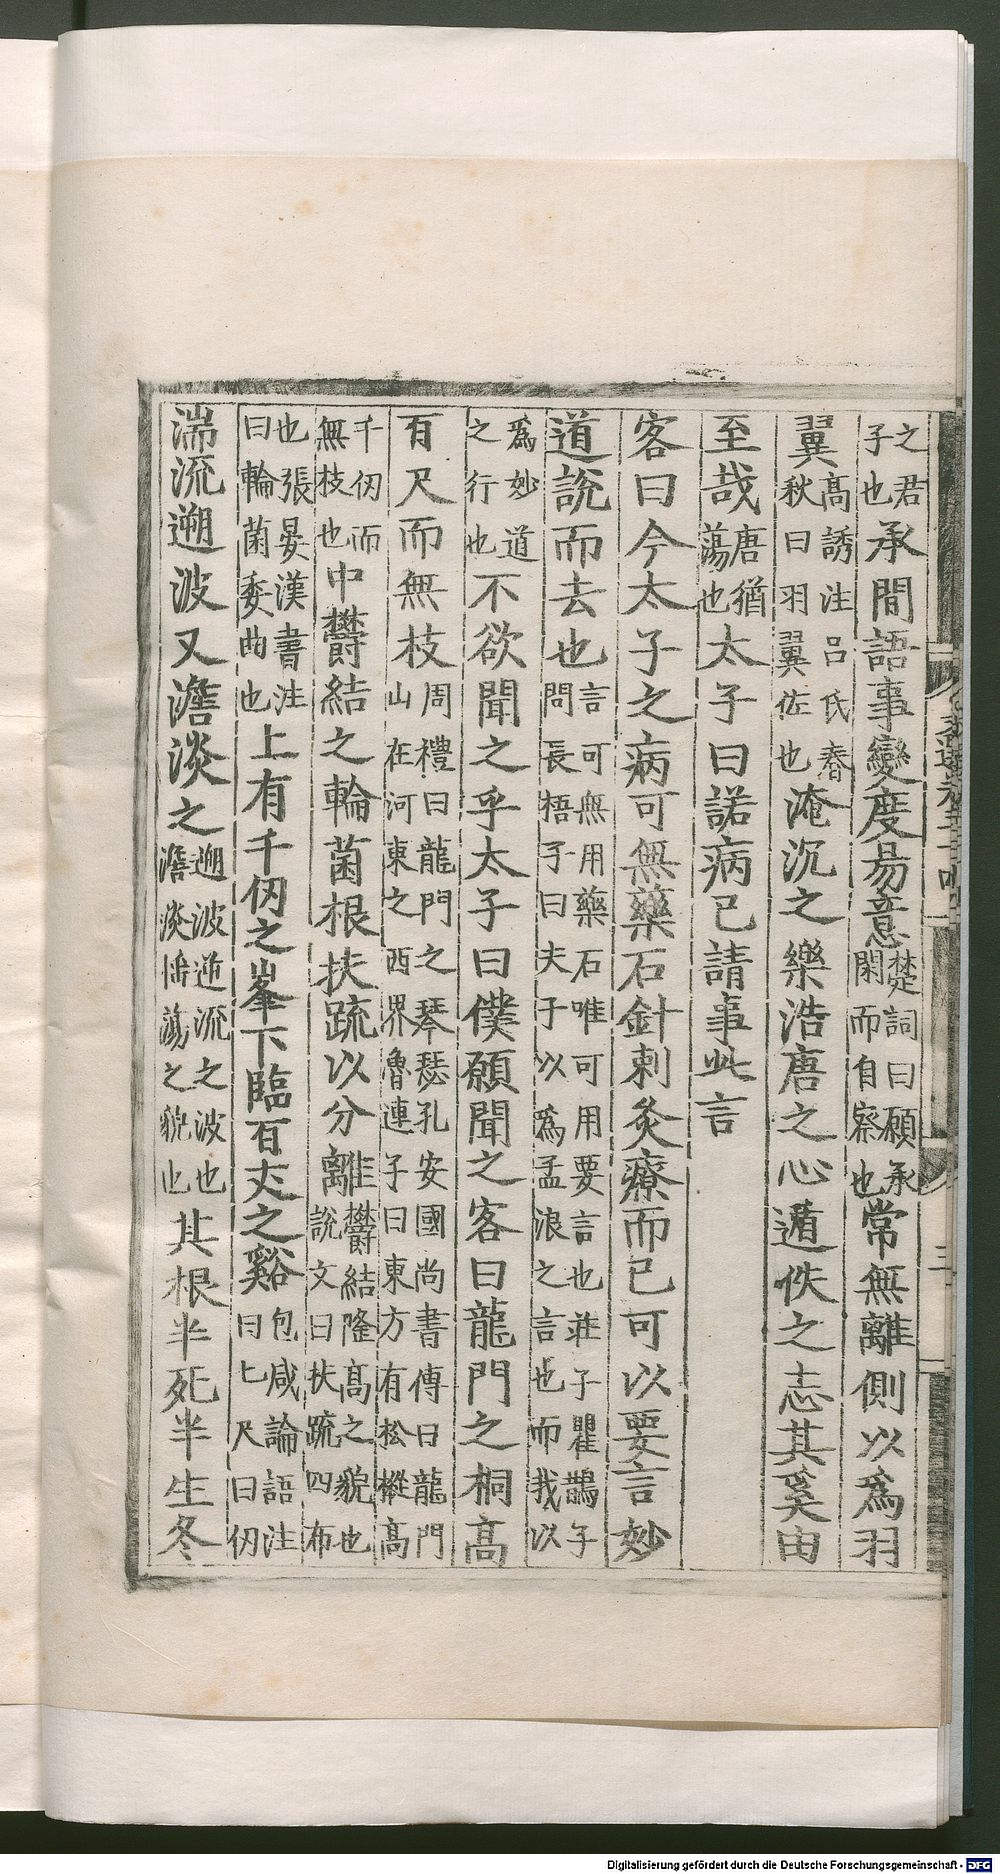 之君子也承間語事變度易意楚詞曰願承閑而自察也常無離側以爲羽
翼高誘注呂氏春秋曰羽翼佐也淹沉之樂浩唐之心遁佚之志其奚由
至哉唐猶蕩也太子曰諾病已請事此言
客曰今太子之病可無藥石針刺灸療而已可以要言妙
道說而去也言可無用藥石唯可用要言也莊子瞿鵲子問長梧子曰夫子以爲孟浪之言也而我以
爲妙道之行也不欲聞之乎太子曰僕願聞之客曰龍門之桐高
百尺而無枝周禮曰龍門之琴瑟孔安國尚書傳曰龍門山在河東之西界魯連子曰東方有松樅高
千仞而無枝也中欝結之輪菌根扶疏以分離欝結隆高之貌也說文曰扶疏四布
也張晏漢書注曰輪菌委曲也上有千仞之峯下臨百丈之谿包咸論語注曰七尺曰仞
湍流遡波又澹淡之遡波逆流之波也澹淡揺蕩之貌也其根半死半生冬
三
Digitalisierung gefördert durch die Deutsche Forschungsgemeinschaft - DFG